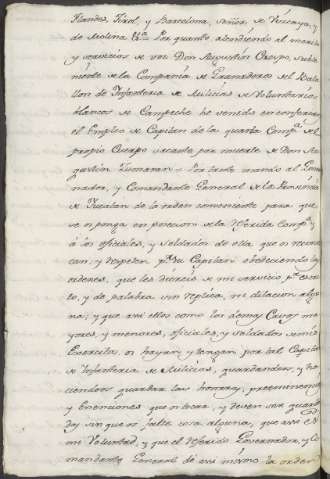 Flandes, Tirol, y Barcelona, Señor de Vizcaya, y
de Molina &ª. Por quanto atendiendo al merito
y servicios de vos Don Agustin Crespo, subte
niente de la Compañia de Granaderos del Batta
llon de Infanteria de Milicias de Voluntarios
blancos de Campeche he venido en conferiros
el Empleo de Capitan de la quarta Compª del
propio Cuerpo vacante por muerte de Don Au
gustin. Por tanto mando al Gover
nador, y Comandante General de la Provincia
de Yucatan dé la orden conveniente para que
se os ponga en posesion de la referida Compª, y
á los oficiales, y Soldados de ella, que os reconoz
can, y respeten pr. su Capitan obedeciendo las
ordenes, que les diereis de mi servicio pr. escri
to, y de palabra sin replica, ni dilacion algu
na; y que asi ellos como los demas Cavos ma
yores, y menores, oficiales, y Soldados de mis
Exercitos, os hayan, y tengan por tal Capitan
de Infanteria de Milicias, guardandoos, y ha
ciendoos guardar las honras, preeminencias
y exenciones que os tocan, y deven ser guarda
das sin que os falte cosa alguna, que asi es
mi Voluntad, y que el referido Governador, y Co
mandante General de asi mismo la orden